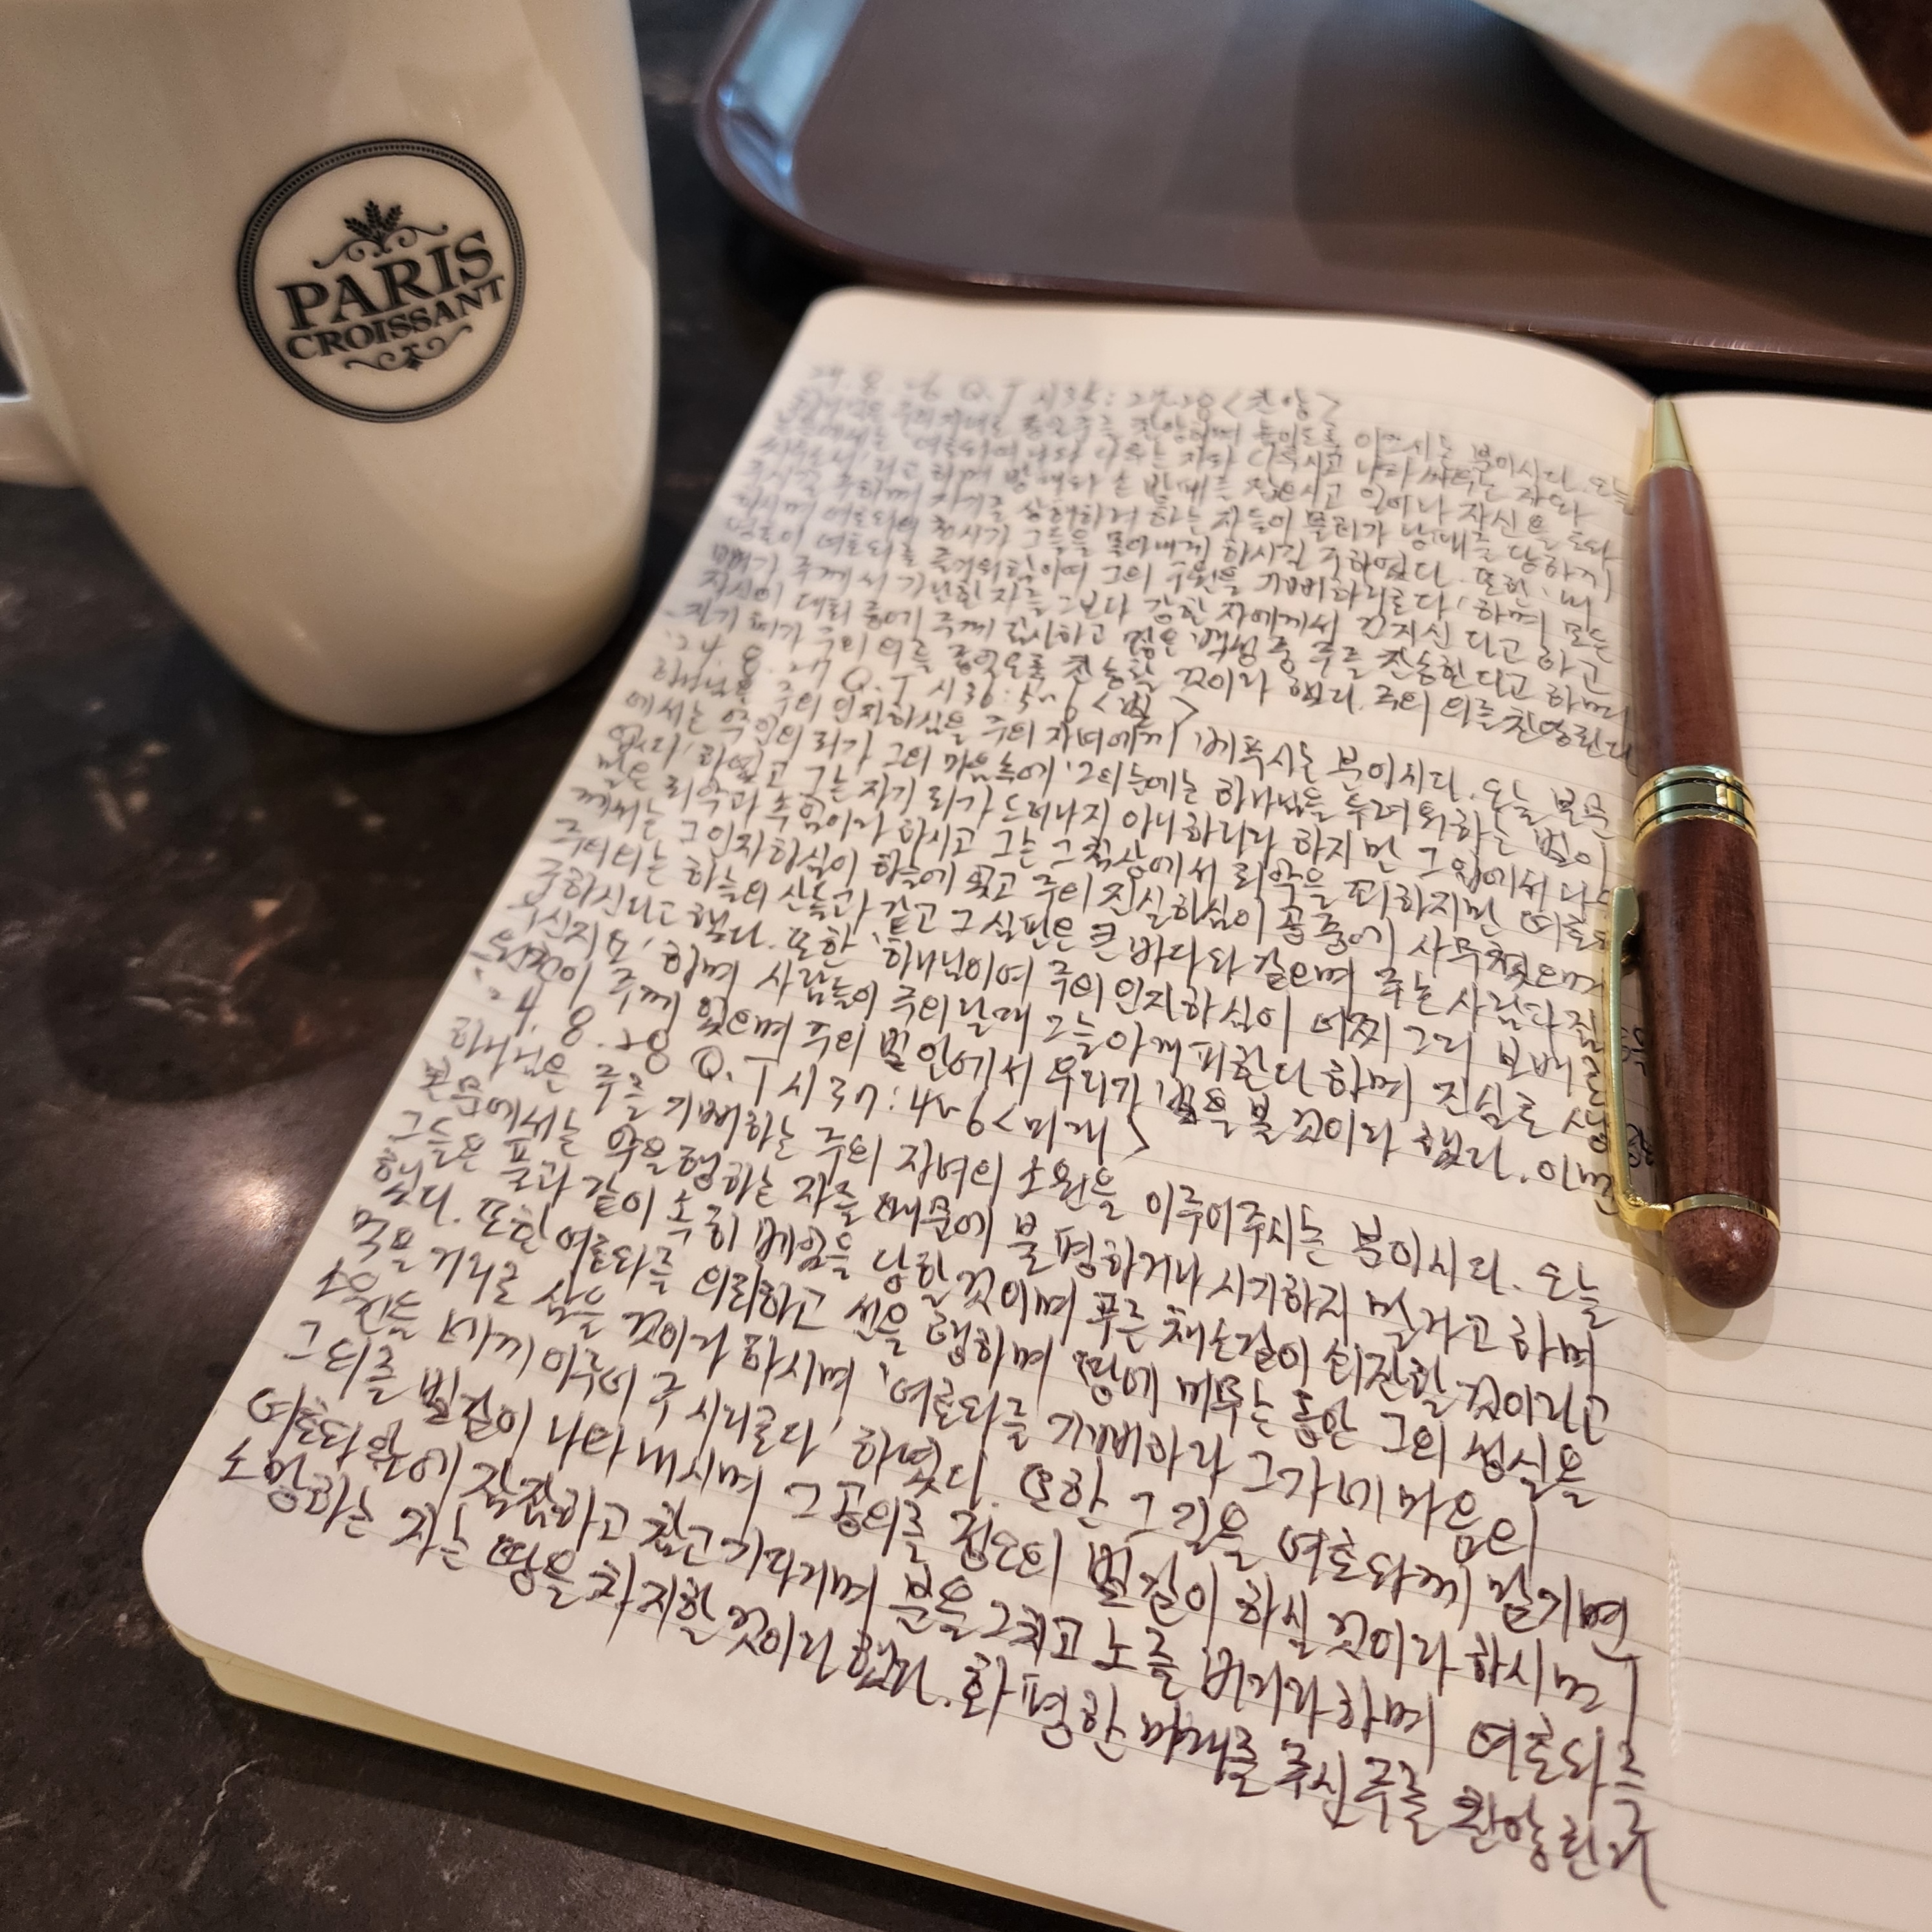 PARIS
CROISSANT
24. 8. 26 Q.T 시35: 27~28 <찬양>
하나님은 주의 자녀로 종일 주를 찬양하며 높이도록 이끄시는 분이시다. 오늘
본문에서는 여호와여 나와 다투는 자와 다투시고 나와 싸우는 자와
싸우소서 라고 하며 방패와 손 방패를 잡으시고 일어나 자신을 도와
주시길 구하며 자기를 상해하려 하는 자들이 물러가 낭패를 당하게
하시며 여호와의 천사가 그들을 몰아내게 하시길 구하였다. 또한 '내
영혼이 여호와를 즐거워함이여 그의 구원을 기뻐하리로다' 하며 모든
뼈가 주께서 가난한 자를 그보다 강한 자에게서 건지신다고 하고
자신이 대회 중에 주께 감사하고 많은 백성 중 주를 찬송한다고 하며
자기 혀가 주의 의를 종일토록 찬송할 것이라 했다. 주의 의를 찬양한다
'24. 8. 27 Q.T 시36: 5~6 <빛>
하나님은 주의 인자하심을 주의 자녀에게 베푸시는 분이시다. 오늘 본문
에서는 악인의 죄가 그의 마음속에 '그의 눈에는 하나님을 두려워하는 빛이
없다' 라 했고 그는 자기 죄가 드러나지 아니하리라 하지만 그 입에서 나오
는 죄악과 속임이라 하시고 그는 그 침상에서 죄악을 꾀하지만 여호와
께서는 그 인자하심이 하늘에 있고 주의 진실하심이 공중에 사무쳤으며
주의 의는 하늘의 산들과 같고 그 심판은 큰 바다와 같으며 주는 사람과 짐
구하신다고 했다. 또한 '하나님이여 주의 인자하심이 어찌 그리 보배로
우신지요' 하며 사람들이 주의 날개 그늘 아래 피한다 하며 진실로 생명
의 원천이 주께 있으며 주의 빛 안에서 우리가 빛을 볼 것이라 했다. 이번
'24. 8. 28 Q.T 시37: 4~6 <미래>
하나님은 주를 기뻐하는 주의 자녀의 소원을 이루어주시는 분이시다. 오늘
본문에서는 악을 행하는 자들 때문에 불평하거나 시기하지 말라고 하며
그들은 풀과 같이 속히 베임을 당할 것이며 푸른 채소같이 쇠잔할 것이라고
했다. 또한 여호와를 의뢰하고 선을 행하며 땅에 머무는 동안 그의 성실을
먹을 거리로 삼을 것이라 하시며 '여호와를 기뻐하라 그가 네 마음의
소원을 네게 이루어 주시리로다' 하였다. 또한 그 길을 여호와께 맡기면
그 의를 빛같이 나타내시며 그 공의를 정오의 빛같이 하실 것이라 하시며
여호와 앞에 잠잠하고 참고 기다리며 분을 그치고 노를 버리라 하며 여호와를
소망하는 자는 땅을 차지할 것이라 했다. 화평한 미래를 주신 주를 찬양한다